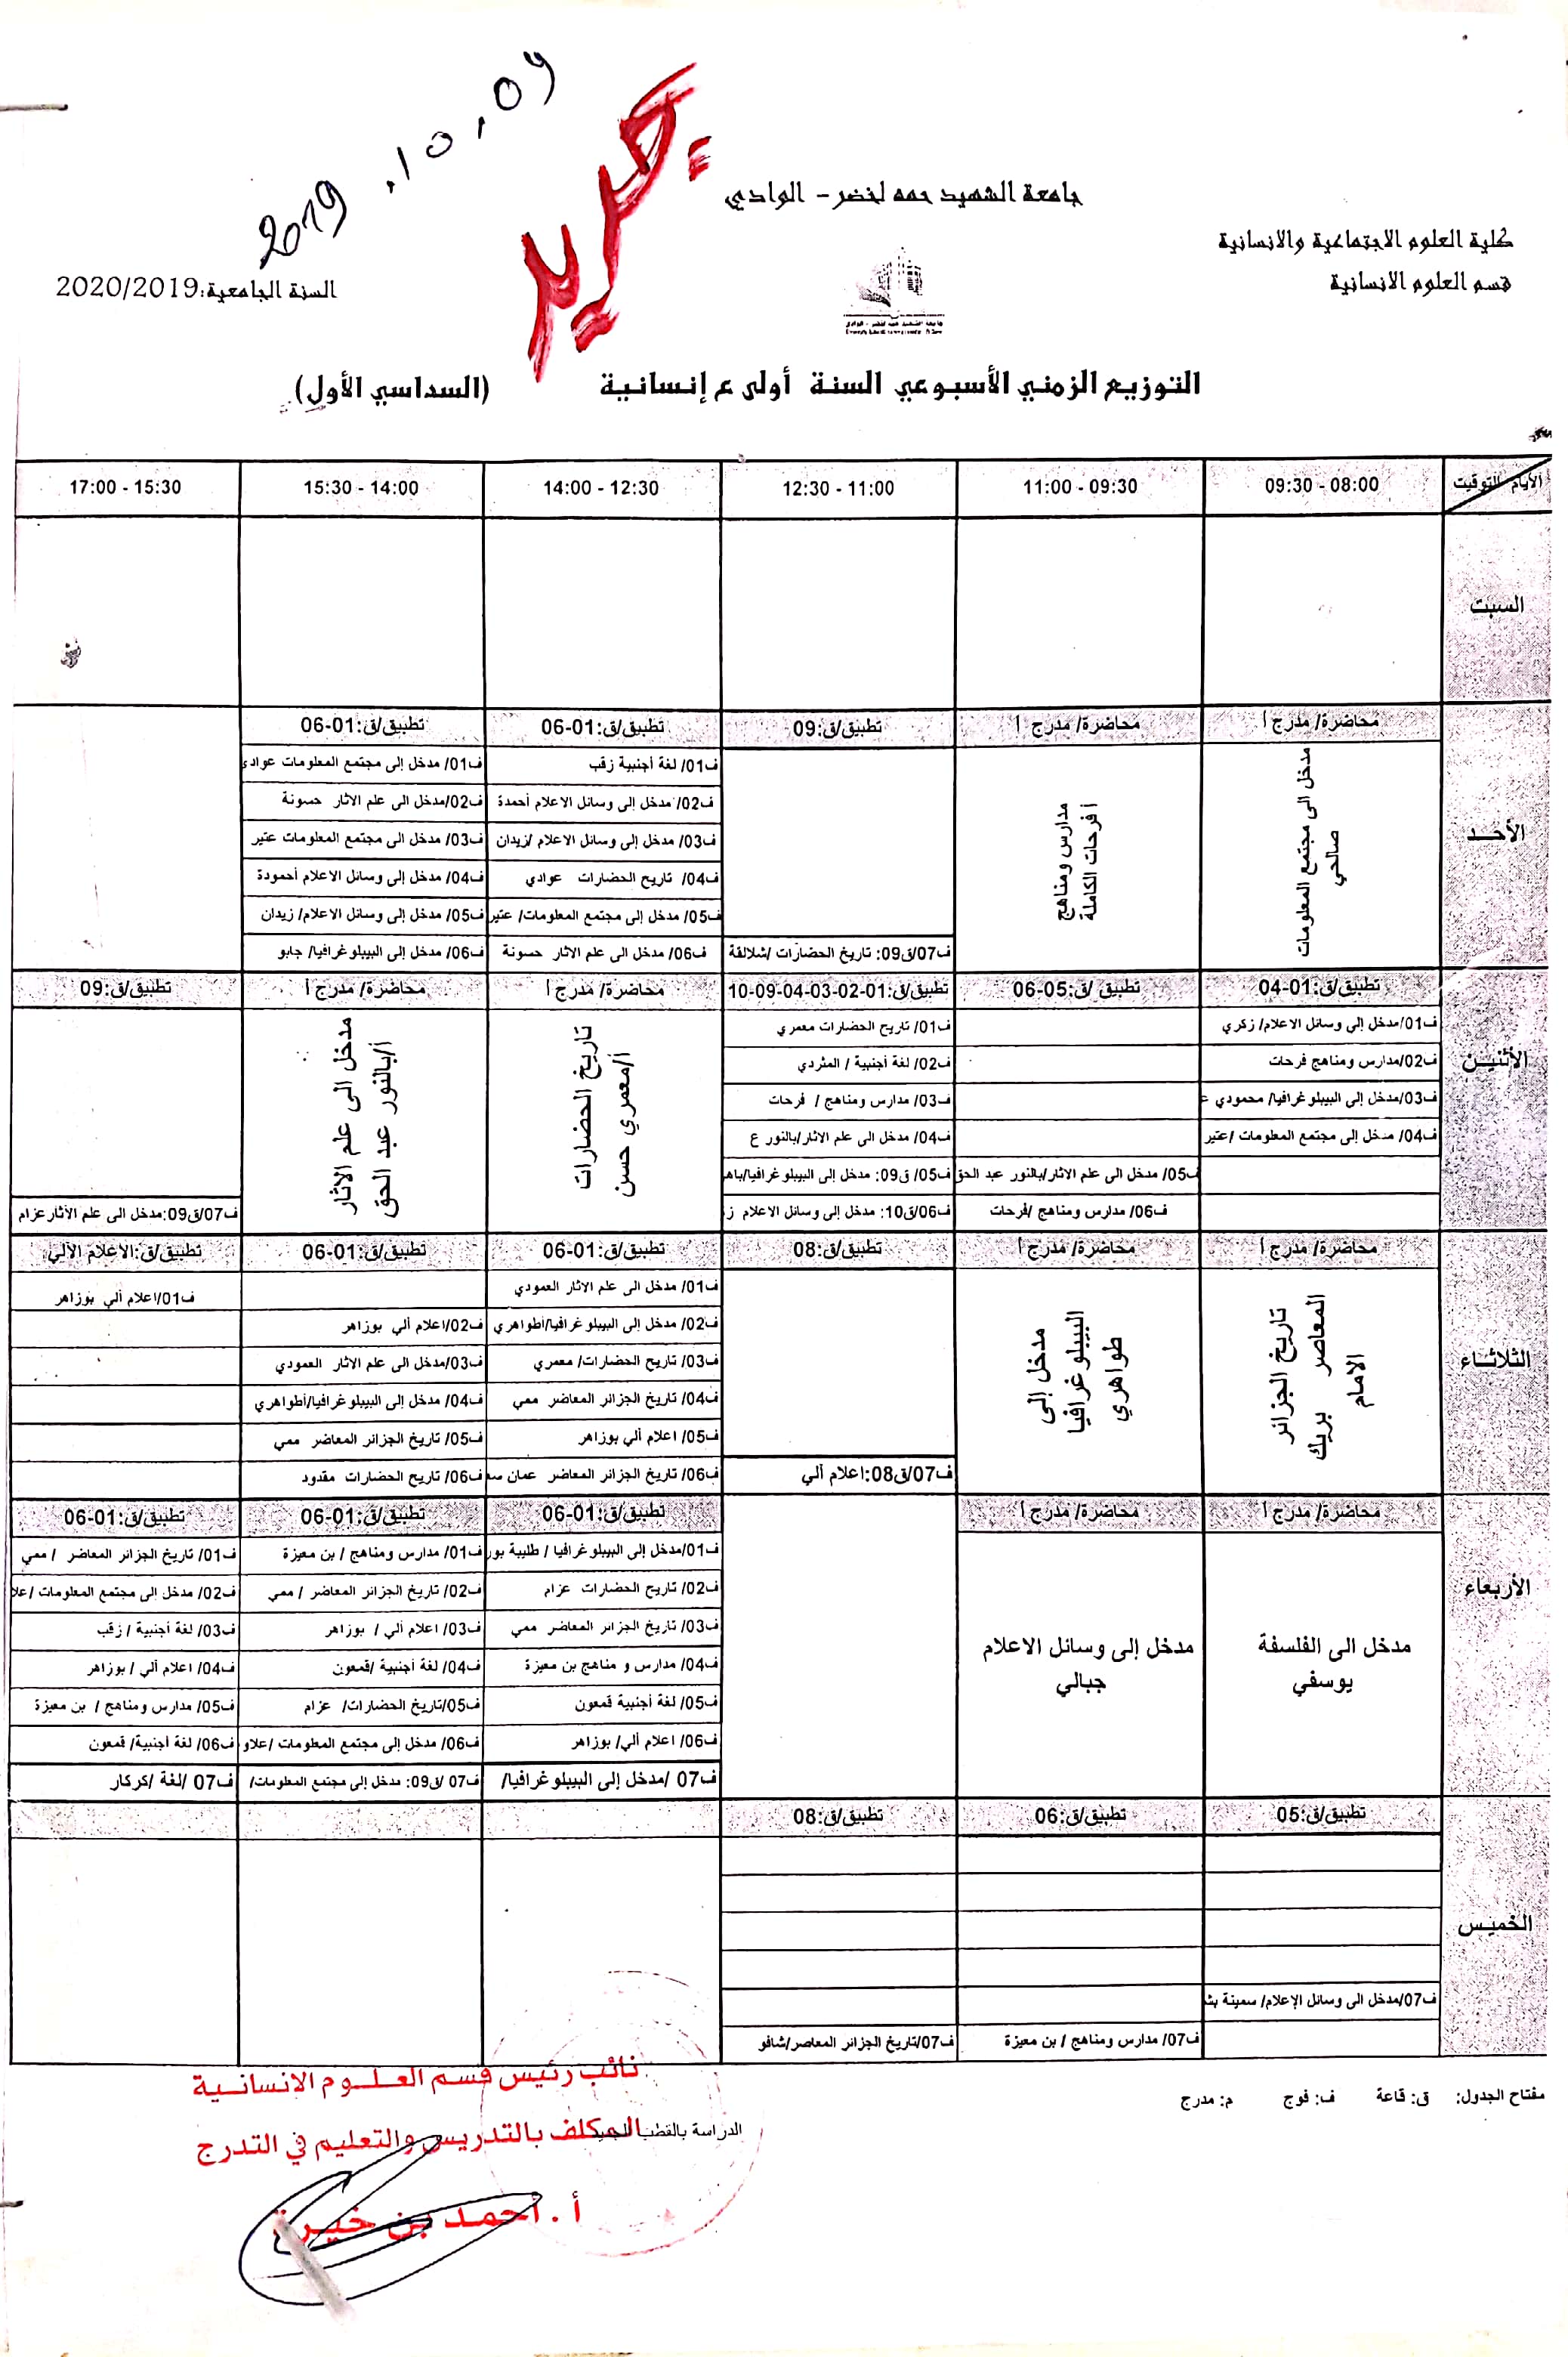 2019.10.09
جديد
جامعة الشهيد حمه لخضر - الوادي
كلية العلوم الاجتماعية والانسانية
قسم العلوم الانسانية
السنة الجامعية:2020/2019
التوزيع الزمني الأسبوعي السنة أولى ع إنسانية (السداسي الأول)
الأيام التوقيت
08:00 - 09:30
09:30 - 11:00
11:00 - 12:30
12:30 - 14:00
14:00 - 15:30
15:30 - 17:00
السبت
الأحد
محاضرة/ مدرج أ
مدخل الى مجتمع المعلومات
صالحي
محاضرة/ مدرج أ
مدارس ومناهج
أ فرحات الكاملة
تطبيق/ق:09
ف07/ق09: تاريخ الحضارات /شلالقة
تطبيق/ق:01-06
ف01/ لغة أجنبية زقب
ف02/ مدخل إلى وسائل الاعلام أحمدة
ف03/ مدخل إلى وسائل الاعلام /زيدان
ف04/ تاريح الحضارات عوادي
ف05/ مدخل إلى مجتمع المعلومات/ عتير
ف06/ مدخل الى علم الاثار حسونة
تطبيق/ق:01-06
ف01/ مدخل إلى مجتمع المعلومات عوادي
ف02/مدخل الى علم الاثار حسونة
ف03/ مدخل الى مجتمع المعلومات عتير
ف04/ مدخل إلى وسائل الاعلام أحمودة
ف05/ مدخل إلى وسائل الاعلام/ زيدان
ف06/ مدخل إلى البيبلوغرافيا/ جابو
الأثنين
تطبيق/ق:01-04
ف01/مدخل إلى وسائل الاعلام/ زكري
ف02/مدارس ومناهج فرحات
ف03/مدخل إلى البيبلوغرافيا/ محمودي ع
ف04/ مدخل إلى مجتمع المعلومات /عتير
تطبيق /ق:05-06
ف05/ مدخل الى علم الاثار/بالنور عبد الحق
ف06/ مدارس ومناهج /فرحات
تطبيق/ق:01-02-03-04-09-10
ف01/ تاريح الحضارات معمري
ف02/ لغة أجنبية / المثردي
ف03/ مدارس ومناهج / فرحات
ف04/ مدخل الى علم الاثار/بالنور ع
ف05/ ق09: مدخل إلى البيبلوغرافيا/باهر
ف06/ق10: مدخل إلى وسائل الاعلام ز
محاضرة/ مدرج أ
تاريخ الحضارات
أ/معمري حسن
محاضرة/ مدرج أ
مدخل الى علم الاثار
أ/بالنور عبد الحق
تطبيق/ق:09
ف07/ق09:مدخل الى علم الأثارعزام
الثلاثاء
محاضرة/ مدرج أ
تاريخ الجزائر
المعاصر بريك
الامام
محاضرة/ مدرج أ
مدخل إلى
البيبلوغرافيا
طواهري
تطبيق/ق:08
ف07/ق08:اعلام ألي
تطبيق/ق:01-06
ف01/ مدخل الى علم الاثار العمودي
ف02/ مدخل إلى البيبلوغرافيا/أطواهري
ف03/ تاريح الحضارات/ معمري
ف04/ تاريخ الجزائر المعاضر ممي
ف05/ اعلام ألي بوزاهر
ف06/ تاريخ الجزائر المعاضر عمان سع
تطبيق/ق:01-06
ف02/اعلام ألي بوزاهر
ف03/مدخل الى علم الاثار العمودي
ف04/ مدخل إلى البيبلوغرافيا/أطواهري
ف05/ تاريخ الجزائر المعاضر ممي
ف06/ تاريح الحضارات مقدود
تطبيق/ق:الاعلام الألي
ف01/اعلام ألي بوزاهر
الأربعاء
محاضرة/ مدرج أ
مدخل الى الفلسفة
يوسفي
محاضرة/ مدرج أ
مدخل إلى وسائل الاعلام
جبالي
تطبيق/ق:01-06
ف01/مدخل إلى البيبلوغرافيا / طليبة بور
ف02/ تاريح الحضارات عزام
ف03/ تاريخ الجزائر المعاضر ممي
ف04/ مدارس و مناهج بن معيزة
ف05/ لغة أجنبية قمعون
ف06/ اعلام ألي/ بوزاهر
ف07 /مدخل إلى البيبلوغرافيا/
تطبيق/ق:01-06
ف01/ مدارس ومناهج / بن معيزة
ف02/ تاريخ الجزائر المعاضر / ممي
ف03/ اعلام ألي / بوزاهر
ف04/ لغة أجنبية /قمعون
ف05/تاريخ الحضارات/ عزام
ف06/ مدخل إلى مجتمع المعلومات /علاو
ف07 /ق09: مدخل إلى مجتمع المعلومات/
تطبيق/ق:01-06
ف01/ تاريخ الجزائر المعاضر / ممي
ف02/ مدخل إلى مجتمع المعلومات /علا
ف03/ لغة أجنبية / زقب
ف04/ اعلام ألي / بوزاهر
ف05/ مدارس ومناهج / بن معيزة
ف06/ لغة أجنبية/ قمعون
ف07 /لغة /كركار
الخميس
تطبيق/ق:05
ف07/مدخل الى وسائل الإعلام/ سمينة بشـ
تطبيق/ق:06
ف07/ مدارس ومناهج / بن معيزة
تطبيق/ق:08
ف07/تاريخ الجزائر المعاصر/شافو
مفتاح الجدول: ق: قاعة ف: فوج م: مدرج
الدراسة بالقطب
نائب رئيس قسم العلوم الانسانية
المكلف بالتدريس والتعليم في التدرج
أ. أحمد بن خيرة